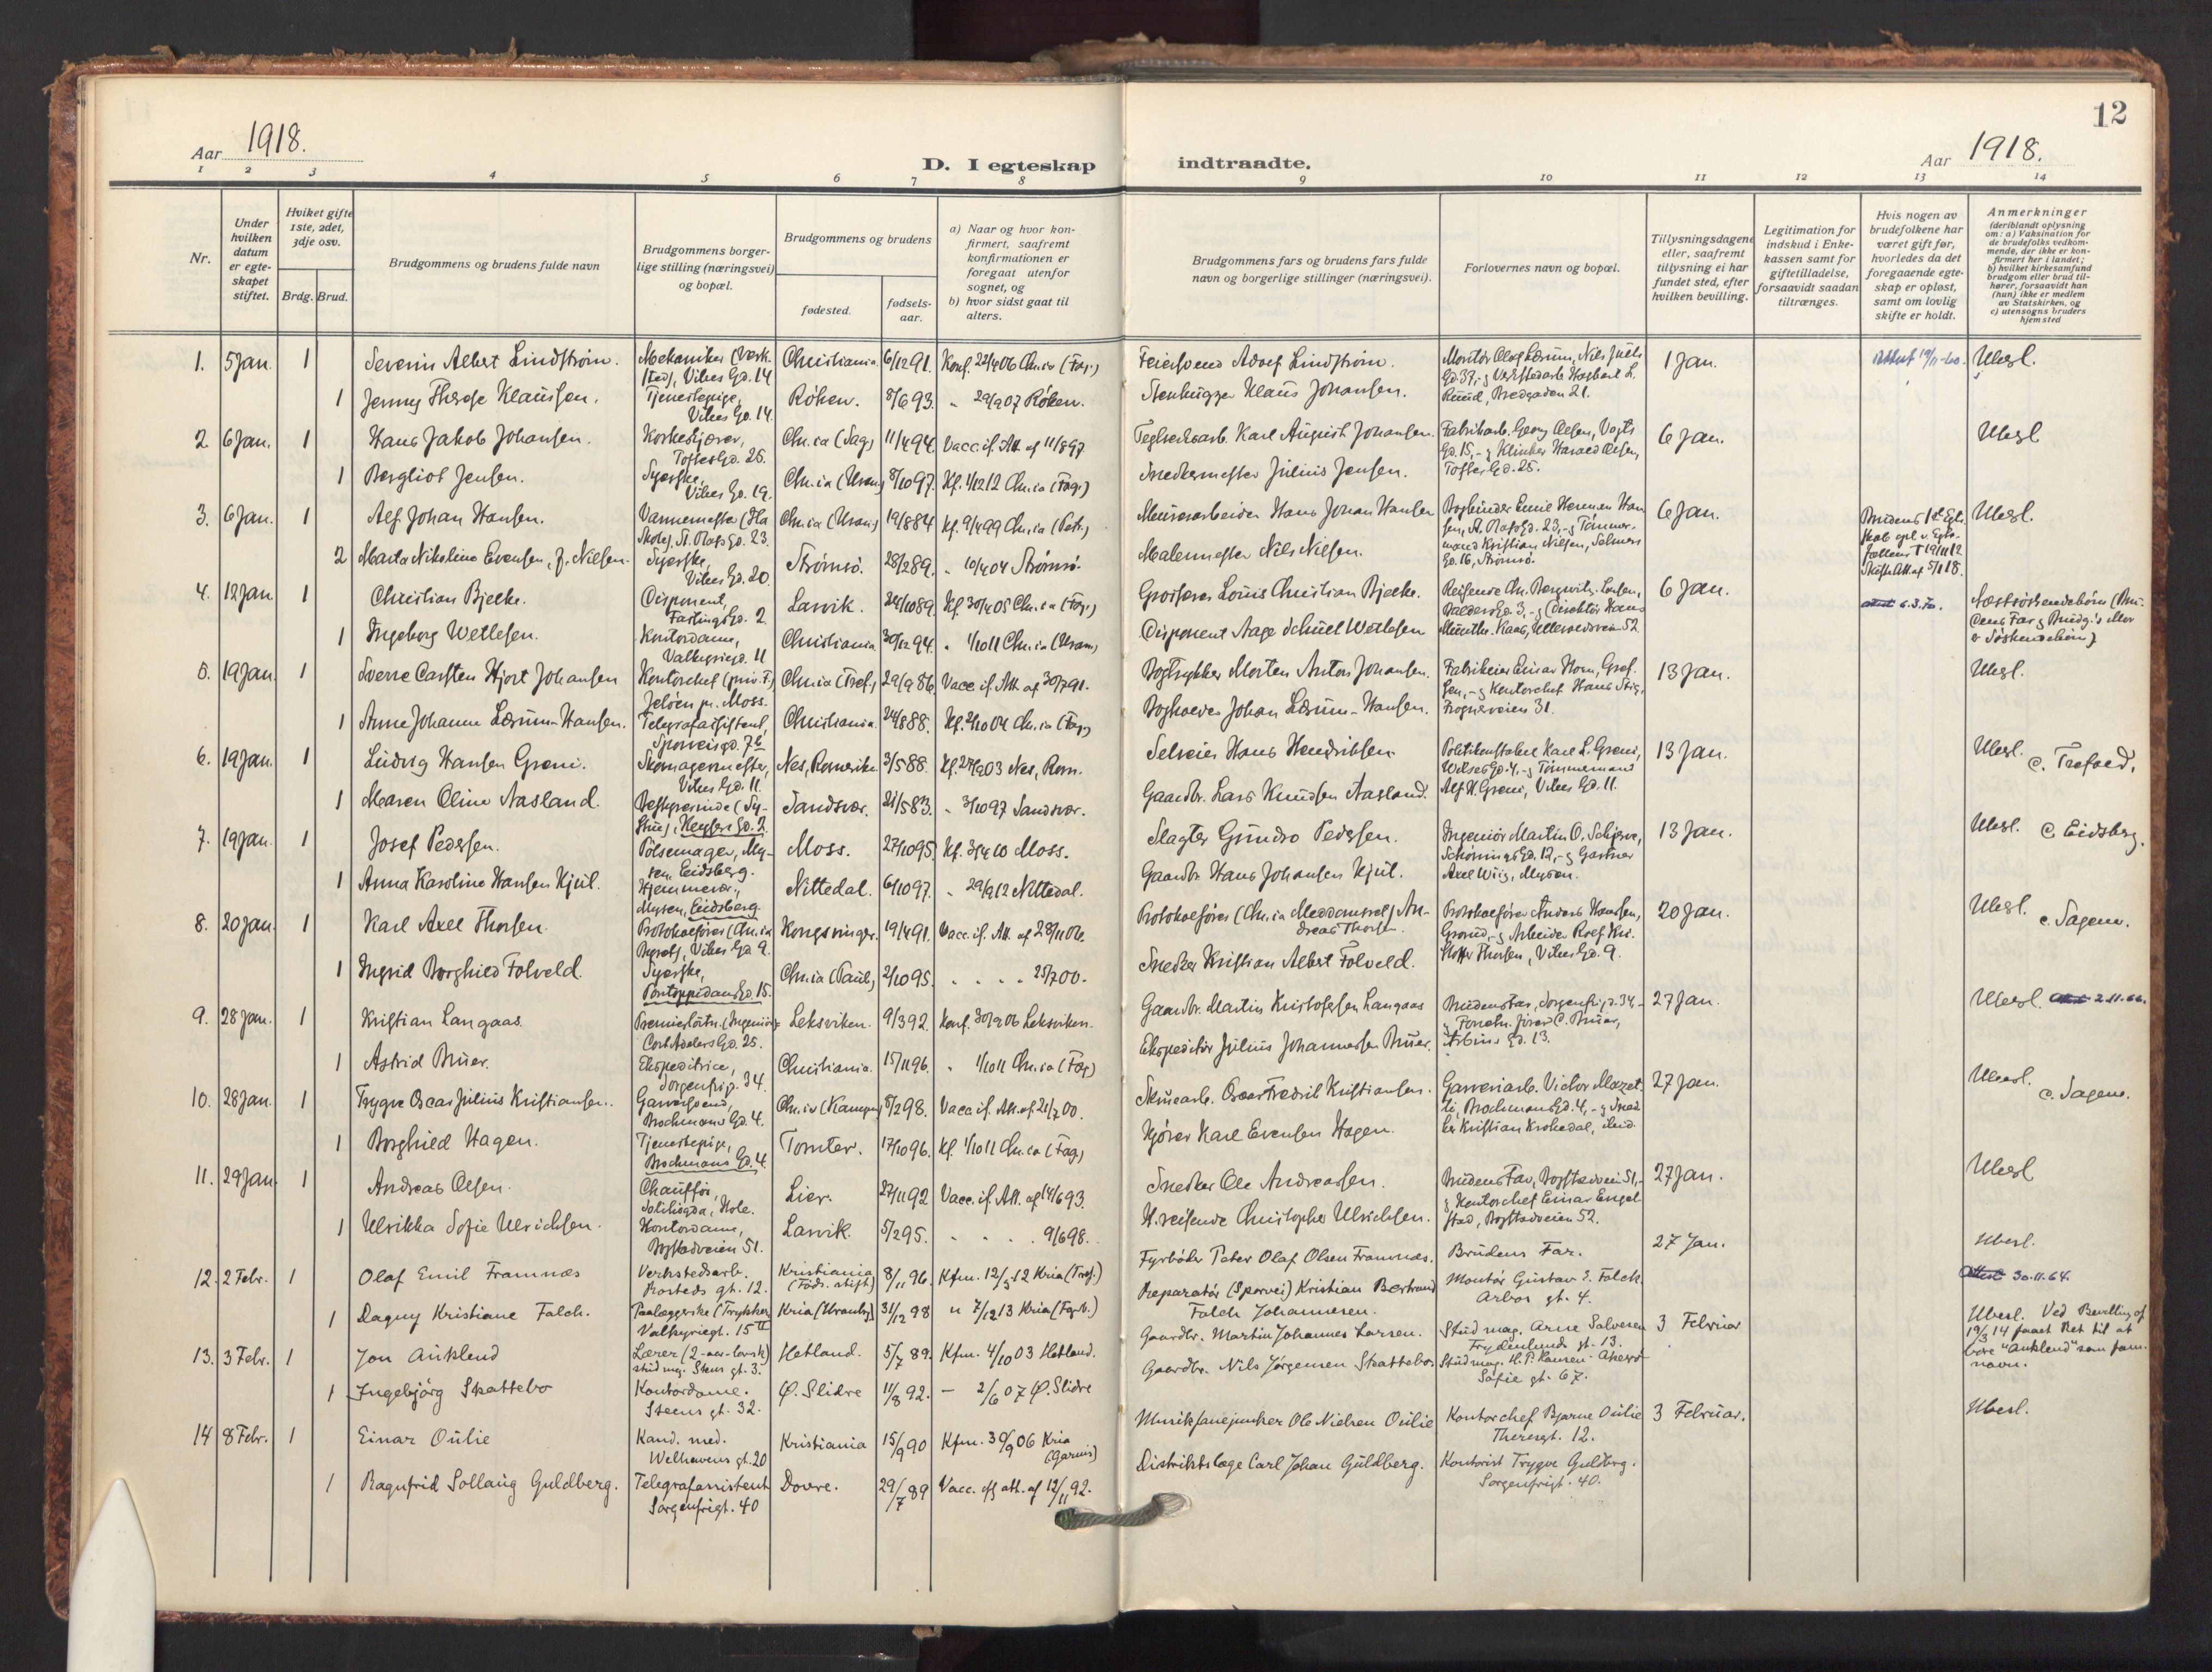 12
Aar 1918.
D. I egteskap indtraadte.
Aar 1918.
1 2 3 4 5 6 7 8 9 10 11 12 13 14
Nr.
Under hvilken datum er egteskapet stiftet.
Hviket gifte 1ste, 2det, 3dje osv.
Brdg. Brud.
Brudgommens og brudens fulde navn
Brudgommens borgerlige stilling (næringsvei) og bopæl.
Brudgommens og brudens
fødested.
fødselsaar.
a) Naar og hvor konfirmert, saafremt konfirmationen er foregaat utenfor sognet, og
b) hvor sidst gaat til alters.
Brudgommens fars og brudens fars fulde navn og borgerlige stillinger (næringsvei).
Forlovernes navn og bopæl.
Tillysningsdagene eller, saafremt tillysning ei har fundet sted, efter hvilken bevilling.
Legitimation for indskud i Enkekassen samt for giftetilladelse, forsaavidt saadan tiltrænges.
Hvis nogen av brudefolkene har været gift før, hvorledes da det foregaaende egteskap er opløst, samt om lovlig skifte er holdt.
Anmerkninger (deriblandt oplysning om: a) Vaksination for de brudefolks vedkommende, der ikke er konfirmert her i landet; b) hvilket kirkesamfund brudgom eller brud tilhører, forsaavidt han (hun) ikke er medlem av Statskirken, og c) utensogns bruders hjemsted
1. 5 Jan. 1 Severin Albert Lindstrøm. Mekaniker (Værksted), Vibes Gd. 14 Christiania 6/12 91. Konf. 22/4 06 Ch.ia (Fag.) Feiersvend Adolf Lindstrøm. Montør Olaf Lærum, Nils Juels Gd. 37, og Verkstedarb. Hagbart L. Ruud, Bredgaden 21. 1 Jan. Ubesl.
1 Jenny Therese Klausen. Tjenestepige, Vibes Gd. 14. Røken. 8/6 93. " 29/9 07 Røken. Stenhugger Klaus Johansen.
2. 6 Jan. 1 Hans Jakob Johansen. Korkeskjærer, Toftes Gd. 25. Ch.ia (Sag.) 11/4 94 Vacc. if. Att. af 11/8 97 Teglverksarb. Karl August Johansen. Fabrikarb. Georg Olsen, Vogts Gd. 15, og Klinker Harald Olsen, Toftes Gd. 25. 6 Jan. Ubesl
1 Bergliot Jensen. Syerske, Vibes Gd. 19. Ch.ia (Uran.) 8/10 97. Kf. 1/12 12 Ch.ia (Fag.) Snedkermester Julius Jensen.
3. 6 Jan. 1 Alf Johan Hansen. Varmemester (Ila Skole), St. Olafs Gd. 23. Ch.ia (Uran.) 19/8 84 Kf. 9/4 99 Ch.ia (Petr.) Murerarbeider Hans Johan Hansen Bogbinder Emil Herman Hansen, St. Olafs Gd. 23, og Tømmermand Kristian Nilsen, Selmers Gd. 16, Strømsø. 6 Jan. Brudens 1ste Egteskab opl. v. Egtefællens † 19/11 12 Skifte Att. af 5/1 18. Ubesl.
2 Marta Nikoline Evensen, f. Nilsen. Syerske, Vibes Gd. 20. Strømsø. 28/2 89. " 10/4 04 Strømsø. Malermester Nils Nilsen.
4. 12 Jan. 1 Christian Bjelke. Disponent, Fastings Gd. 2. Larvik. 24/10 89 Kf. 30/4 05 Ch.ia (Fag.) Grosserer Louis Christian Bjelke. Reisende Chr. Bergwitz-Larsen, Valdres Gd. 3, og Direktør Hans Münthe-Kaas, Ullevoldsveien 52. 6 Jan. 6.3.70. Næstsøskendebørn (Brudens Far og Brudg.'s Mor er Søskendebørn)
1 Ingeborg Wetlesen. Kontordame, Valkyriegd. 11 Christiania 30/12 94. " 1/10 11 Ch.ia (Uran.) Disponent Aage Schuel Wetlesen
5. 19 Jan. 1 Sverre Carsten Hjort Johansen Kontorchef (priv. F.) Jeløen pr. Moss. Ch.ia (Tref.) 29/9 86. Vacc. if. Att. af 30/7 91. Bogtrykker Morten Anton Johansen. Fabrikeier Einar Horn, Grefsen, og Kontorchef Hans Stig, Frognerveien 31. 13 Jan. Ubesl.
1 Anne Johanne Lærum-Hansen. Telegrafassistent, Sporveisgd. 7b Christiania. 24/8 88. Kf. 2/10 04 Ch.ia (Fag.) Boghandler Johan Lærum-Hansen.
6. 19 Jan. 1 Ludvig Hansen Greni. Skomagermester, Vibes Gd. 11. Nes, Romerike 3/5 88. Kf. 27/9 03 Nes, Rom. Selveier Hans Hendriksen. Politikonstabel Karl L. Greni, Wilses Gd. 4, og Tømmermand Alf H. Greni, Vibes Gd. 11. 13 Jan. Ubesl. c. Trefoed.
1 Maren Oline Aasland. Bestyrerinde (Systue), Keysers Gd. 2. Sandsvær. 21/5 83. " 3/10 97 Sandsvær. Gaardbr. Lars Knudsen Aasland.
7. 19 Jan. 1 Josef Pedersen. Pølsemager, Mysen, Eidsberg. Moss. 27/10 95. Kf. 3/4 10 Moss. Slagter Gundro Pedersen. Ingeniør Martin O. Schjerve, Schønings Gd. 12, og Gartner Axel Wiig, Mysen. 13 Jan. Ubesl. c. Eidsberg.
1 Anna Karoline Hansen Kjul. Hjemmevær., Mysen, Eidsberg. Nittedal. 6/10 97. " 29/9 12 Nittedal. Gaardbr. Hans Johansen Kjul.
8. 20 Jan. 1 Karl Axel Thorsen. Protokolfører (Ch.ia Byret), Vibes Gd. 9. Kongsvinger. 19/4 91. Vacc. if. Att. af 28/11 06. Protokolfører (Ch.ia Meddomsret) Andreas Thorsen. Protokolfører Anders Hansen, Grorud, og Arbeider Rolf Kristoffer Thorsen, Vibes Gd. 9. 20 Jan. Ubesl. c. Sagene.
1 Ingrid Borghild Folveld. Syerske, Pontoppidans Gd. 15. Ch.ia (Paul.) 2/10 95. " " " " 25/7 00. Snedker Kristian Albert Folveld.
9. 28 Jan. 1 Kristian Langaas. Premierløitn. (Ingeniør), Cort Adelers Gd. 25. Leksviken. 9/3 92. Konf. 30/9 06 Leksviken. Gaardbr. Martin Kristofersen Langaas Brudens Far, Sorgenfrig. 34, og Forretn.fører C. Bruer, Arbins Gd. 13. 27 Jan. Ubesl. 2.11.66.
1 Astrid Bruer. Ekspeditrice, Sorgenfrig. 34. Christiania. 15/11 96. " 1/10 11 Ch.ia (Fag.) Ekspeditør Julius Johannessen Bruer.
10. 28 Jan. 1 Trygve Oscar Julius Kristiansen. Garversvend, Brochmans Gd. 4. Ch.ia (Kampen) 8/2 98. Vacc. if. Att. af 21/7 00. Skruearb. Oscar Fredrik Kristiansen. Garveriarb. Victor Mazetti, Brochmans Gd. 4, og Snedker Kristian Krokedal, ibid. 27 Jan. Ubesl. c. Sagene.
1 Borghild Hagen. Tjenestepige, Brochmans Gd. 4. Tomter. 17/10 96. Kf. 1/10 11 Ch.ia (Fag.) Kjører Karl Evensen Hagen.
11. 29 Jan. 1 Andreas Olsen. Chauffør, Solihøgda, Hole. Lier. 27/11 92 Vacc. if. Att. af 14/6 93. Snedker Ole Andreassen. Brudens Far, Bogstadveien 51, og Kontorchef Einar Engelstad, Bogstadveien 52. 27 Jan. Ubesl
1 Ulrikka Sofie Ulrichsen. Kontordame, Bogstadveien 51. Larvik. 5/2 95. " " " " 9/6 98. H.reisende Christopher Ulrichsen.
12. 2 Febr. 1 Olaf Emil Framnæs Verkstedsarb. Rosteds gt. 12. Kristiania (Føds. stift) 8/11 96. Kfm. 12/5 12 Kria (Tref.) Fyrbøder Peter Olaf Olsen Framnæs. Brudens Far. Montør Gustav E. Falch Arbos gt. 4. 27 Jan. Ubesl. 30.11.64.
1 Dagny Kristiane Falch. Paalæggerske (Trykker) Valkyriegt. 15 II Kria (Uranbg.) 31/12 98 " 7/12 13 Kria (Fagb.) Reparatør (Sporvei) Kristian Bertrand Falch Johannesen.
13. 3 Febr. 1 Jon Auklend Lærer (2-aar-lønsk) stud mg. Stens gt. 3. Hetland. 5/7 89. Kfm. 4/10 03 Hetland. Gaardbr. Martin Johannes Larsen. Stud mag. Arne Salvesen Frydenlunds gt. 13. Stud mag. H. P. Hansen Akersö Sofie gt. 67. 3 Februar Ubesl. Ved Bevilling af 19/3 14 faaet Ret til at bære "Auklend" som fam. navn.
1 Ingebjörg Skattebo Kontordame. Steens gt. 32. Ø. Slidre 11/8 92. — 2/6 07 Ø. Slidre Gaardbr. Nils Jörgensen Skattebo.
14 8 Febr. 1 Einar Oulie Kand. med. Welhavens gt. 20 Kristiania 15/9 90 Kfm. 30/9 06 Kria (Garnis) Musikfanejunker Ole Nielsen Oulie Kontorchef Bjarne Oulie Theresgt. 12. Kontorist Trygve Guldberg. Sorgenfrigt. 40. 3 Februar. Ubesl.
1 Ragnfrid Sollaug Guldberg. Telegrafassistent Sorgenfrigt. 40 Dovre. 29/7 89 Vacc. iflg att. af 12/11 92. Distriktslæge Carl Johan Guldberg.